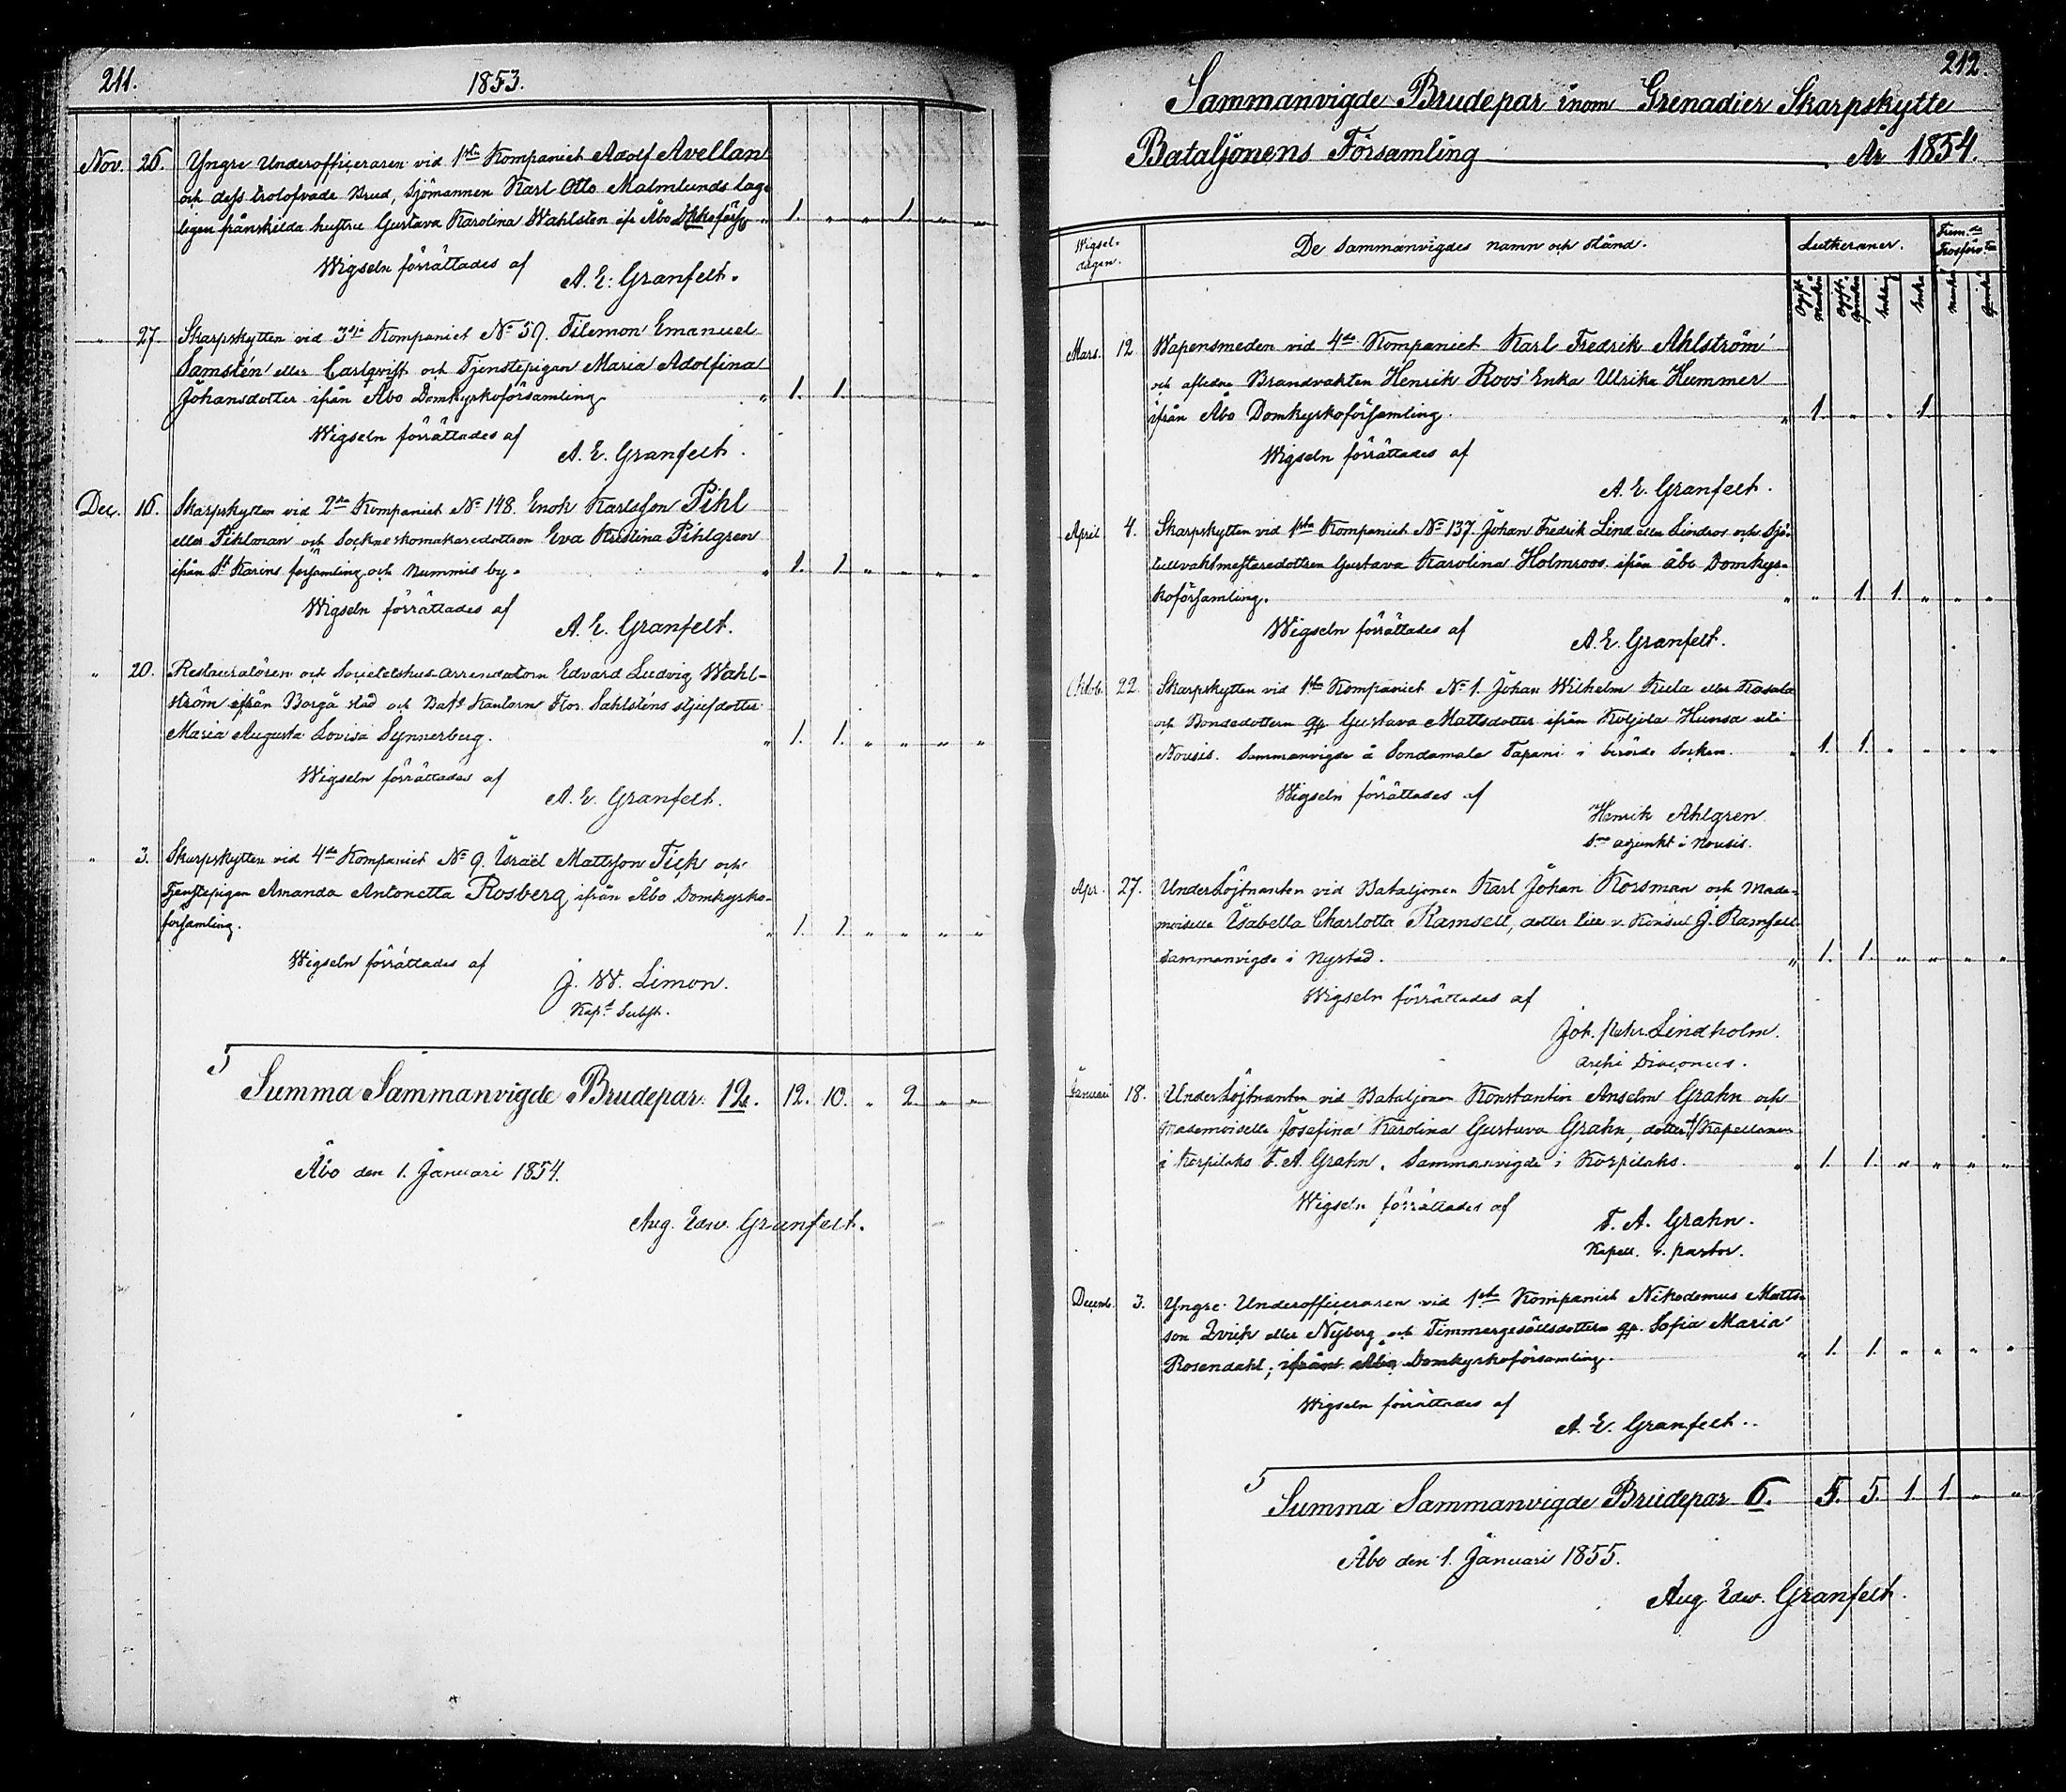 211.
1853.
Nov. 26. Yngre Underofficeraren vid 1sta Kompaniet Adolf Avellan
och dess trolofvade Brud, Sjömannen Karl Otto Malmlunds lag-
ligen frånskilda hustru Gustava Karolina Wahlsten ifr. Åbo " 1. " " 1. " "
Wigseln förrättades af
A. E. Granfelt.
" 27. Skarpskytten vid 3dje Kompaniet No 59. Filemon Emanuel
Samstén eller Carlqvist och Tjenstepigan Maria Adolfina
Johansdotter ifrån Åbo Domkyrkoförsamling. " 1. 1.
Wigseln förrättades af
A. E. Granfelt.
Dec. 16. Skarpskytten vid 2dra Kompaniet No 148. Enok Karlsson Pihl
eller Pihlman och Sockneskomakaredottren Eva Kristina Pihlgren
ifrån St Karins församling och Nummis by. " 1. 1. " " " "
Wigseln förrättades af
A. E. Granfelt.
" 20. Restauratören och Societetshus-arrendatorn Edvard Ludvig Wahl-
ström ifrån Borgå stad och Bats Kantorn Flor. Sahlsténs stjufdotter
Maria Augusta Lovisa Synnerberg. " 1. 1. " " " "
Wigseln förrättades af
A. E. Granfelt.
" 3. Skarpskytten vid 4de Kompaniet No 9. Israël Mattsson Tick och
Tjenstepigan Amanda Antonetta Rosberg, ifrån Åbo Domkyrko-
församling. " 1. 1. " " " "
Wigseln förrättades af
J. W. Limon.
Kaps Subst.
Summa Sammanvigde Brudepar 12. 12. 10. " 2. " "
Åbo den 1. Januari 1854.
Aug. Edw. Granfelt.
212.
Sammanvigde Brudepar inom Grenadier Skarpskytte
Bataljonens Församling År 1854.
Wigsel-
dagen.
De Sammanvigdes namn och stånd.
Lutheraner.
Mars. 12. Wapensmeden vid 4de Kompaniet Karl Fredrik Ahlström
och aflidne Brandvakten Henrik Roos' Enka Ulrika Hummer
ifrån Åbo Domkyrkoförsamling. " 1. " " 1.
Wigseln förrättades af
A. E. Granfelt.
April 4. Skarpskytten vid 1sta Kompaniet No 137. Johan Fredrik Lind eller Lindros och Sjö-
tullvaktmästaredottren Gustava Karolina Holmroos ifrån Åbo Domkyr-
koförsamling. " " 1. 1. " " "
Wigseln förrättades af
A. E. Granfelt.
Oktob. 22. Skarpskytten vid 1sta Kompaniet No 1. Johan Wilhelm Kula eller Kasala
och Bondedottern Gustava Mattsdotter ifrån Koljola Hunsa uti
Nousis. Sammanvigde å Sondamala Tapani i berörde Socken. " 1. 1. " " " "
Wigseln förrättades af
Henrik Ahlgren
adjunkt i Nousis.
Apr. 27. UnderLöjtnanten vid Bataljonen Karl Johan Korsman och Made-
moiselle Isabella Charlotta Ramsell, dotter till v. Konsul J. Ramsell
Sammanvigde i Nystad. " 1. 1. " " " "
Wigseln förrättades af
Joh. Petr. Lindholm.
Archi Diaconus.
Januari 18. UnderLöjtnanten vid Bataljonen Konstantin Anselm Grahn och
Mademoiselle Josefina Karolina Gustava Grahn, dotter t/ Kapellanen
i Korpilaks F. A. Grahn. Sammanvigde i Korpilaks. " 1. 1. " " " "
Wigseln förrättades af
F. A. Grahn.
Kapell. v. pastor.
Decemb. 3. Yngre Underofficeraren vid 1sta Kompaniet Nikodemus Matts-
son Qvick eller Nyberg och Timmergesällsdottern Sofia Maria
Rosendahl, ifrån Åbo Domkyrkoförsamling. " 1. 1. " " " "
Wigseln förrättades af
A. E. Granfelt.
Summa Sammanvigde Brudepar 6. 5. 5. 1. 1. " "
Åbo den 1. Januari 1855.
Aug. Edw. Granfelt.